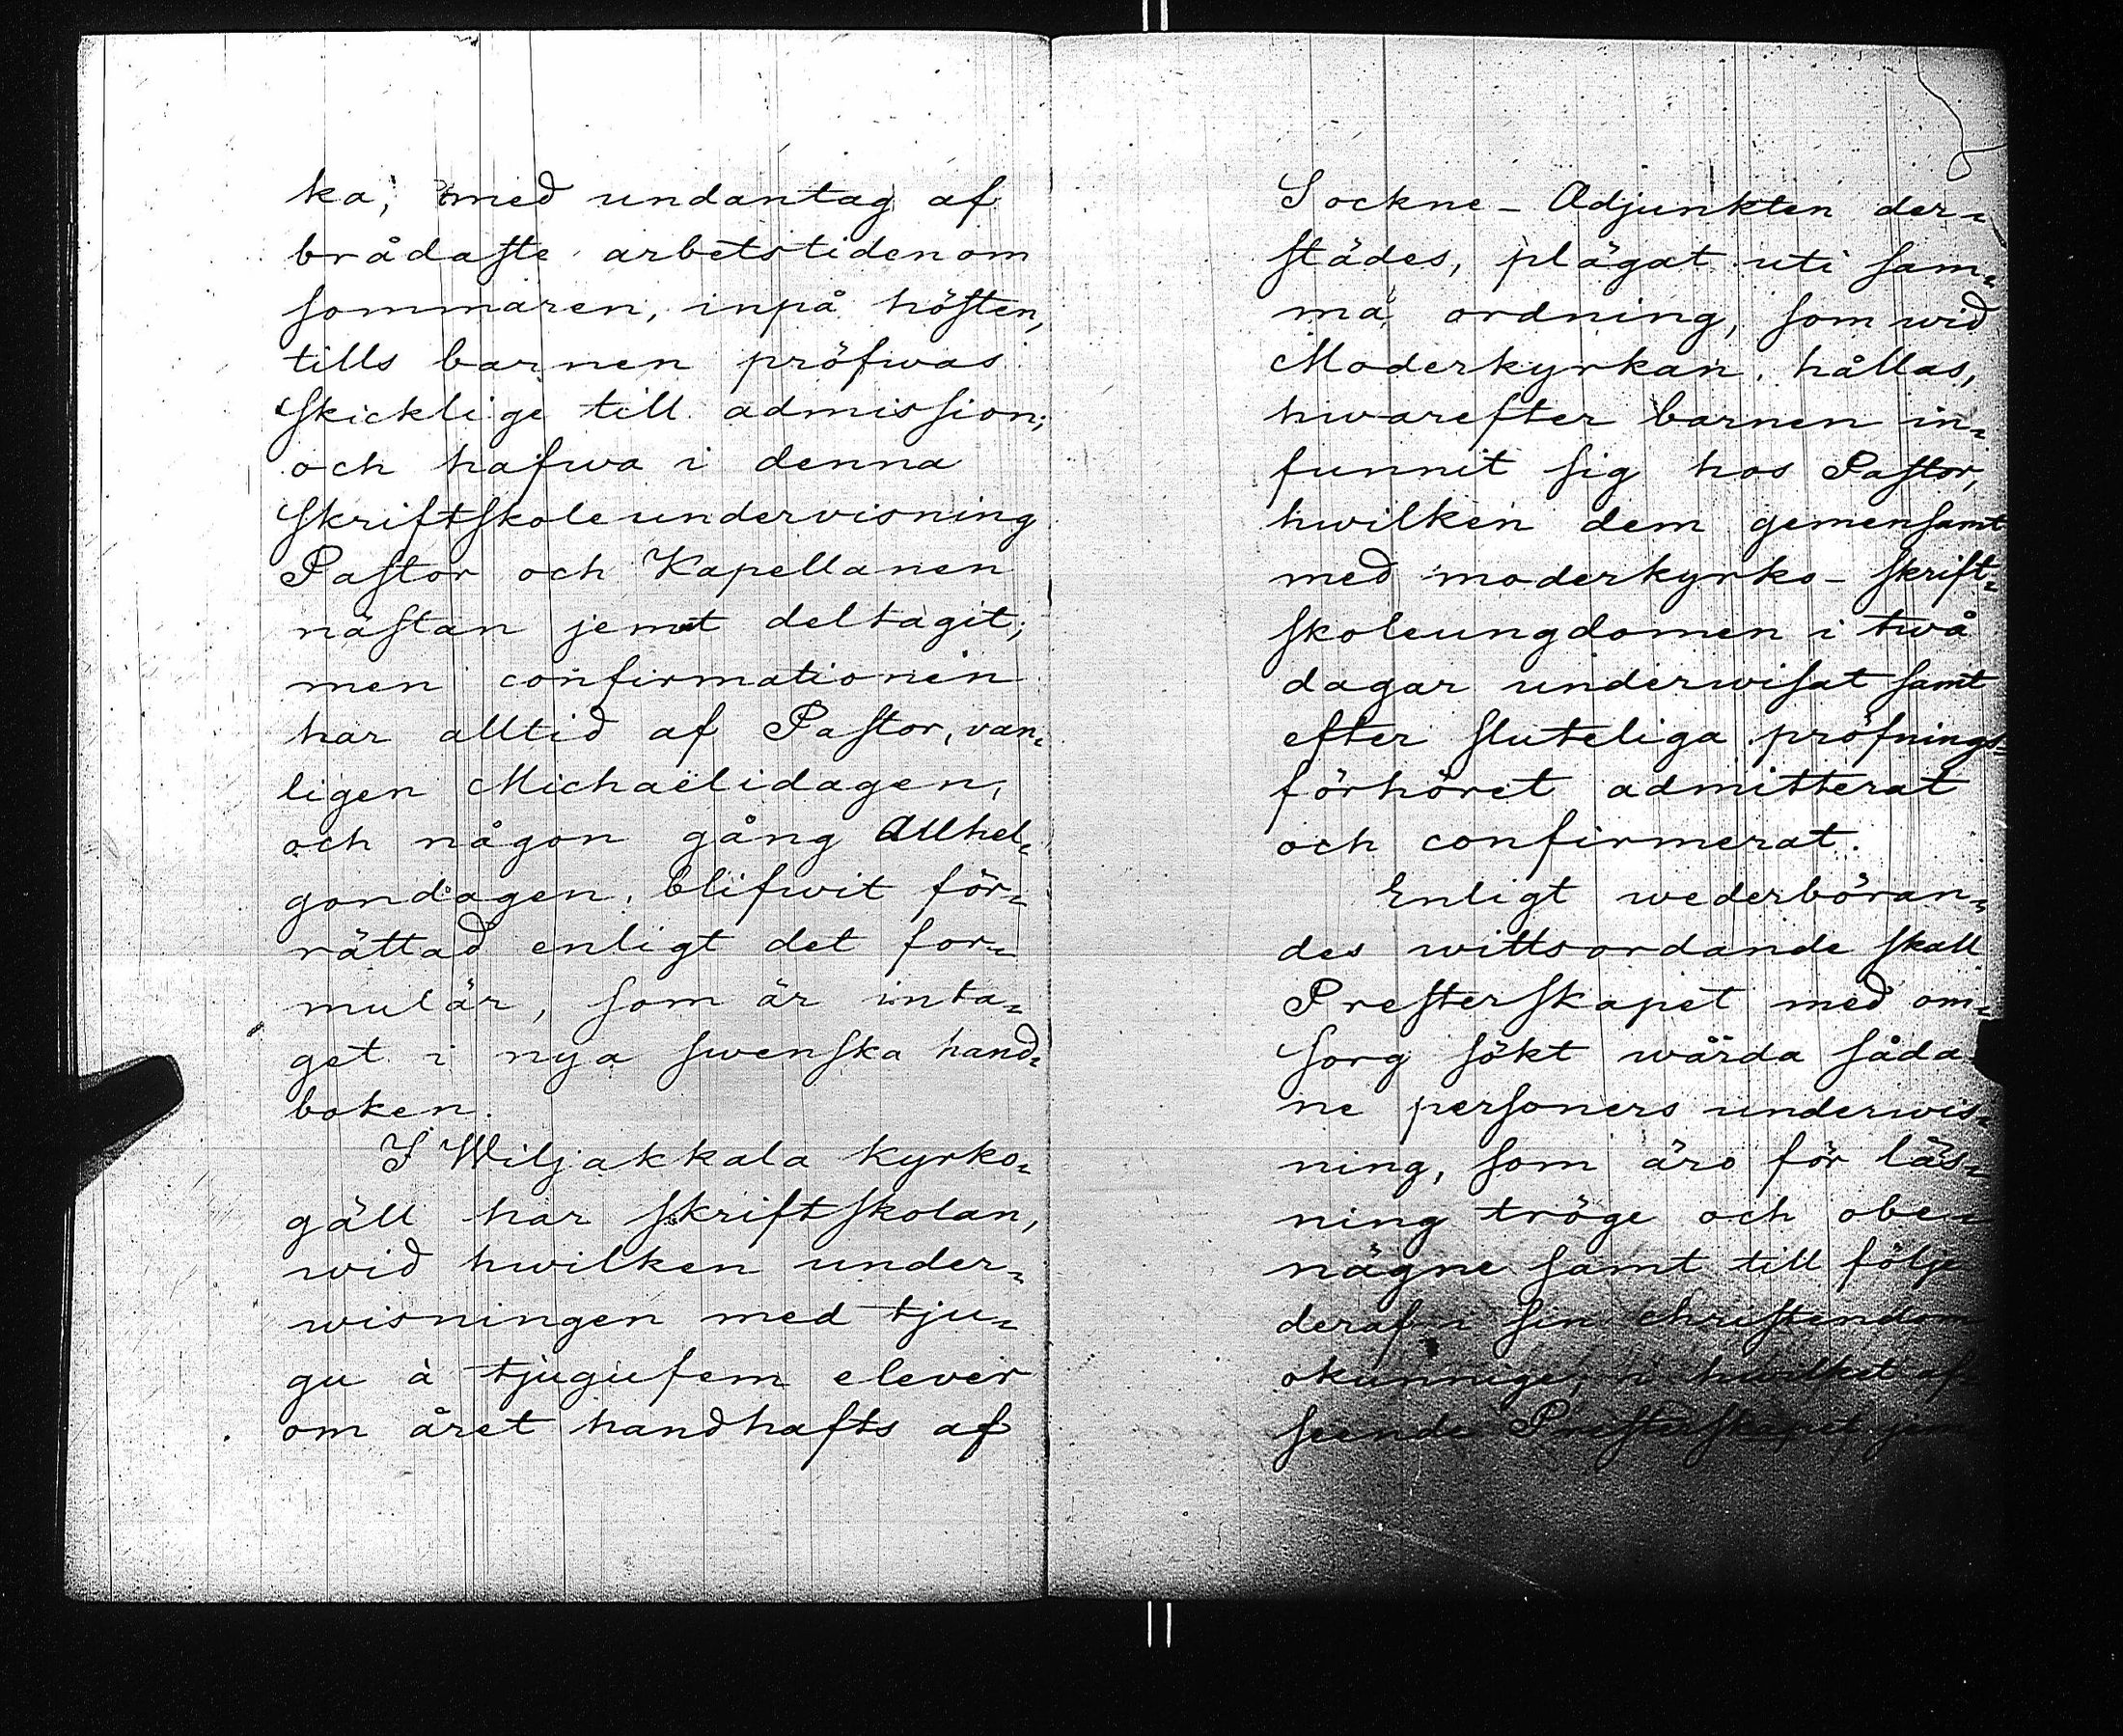 ka, med undantag af
brådaste arbetstiden om
sommaren, inpå hösten,
tills barnen pröfwas
skicklige till admission;
och hafwa i denna
skriftskoleundervisning
Pastor och Kapellanen
nästan jemt deltagit;
men confirmationen
har alltid af Pastor, van-
ligen Michaëlidagen,
och någon gång Allhel-
gondagen, blifwit för-
rättad enligt det for-
mulär, som är inta-
get i nya swenska hand-
boken.
I Wiljakkala kyrko-
gäll har skriftskolan,
wid hwilken under-
wisningen med tju-
gu à tjugufem elever
om året handhafts af
Sockne-Adjunkten der-
städes, plägat uti sam-
ma ordning, som wid
Moderkyrkan, hållas,
hwarefter barnen in-
funnit sig hos Pastor,
hwilken dem gemensamt
med moderkyrko-skrift-
skoleungdomen i twå
dagar underwisat samt
efter sluteliga pröfnings-
förhöret admitterat
och confirmerat.
Enligt wederböran-
des wittsordande skall
Presterskapet med om-
sorg sökt wårda såda-
ne personers underwis-
ning, som äro för läs-
ning tröge och obe-
nägne samt till följe
deraf i sin christendom
okunnige, i hwilket af-
seende Presterskapet jem